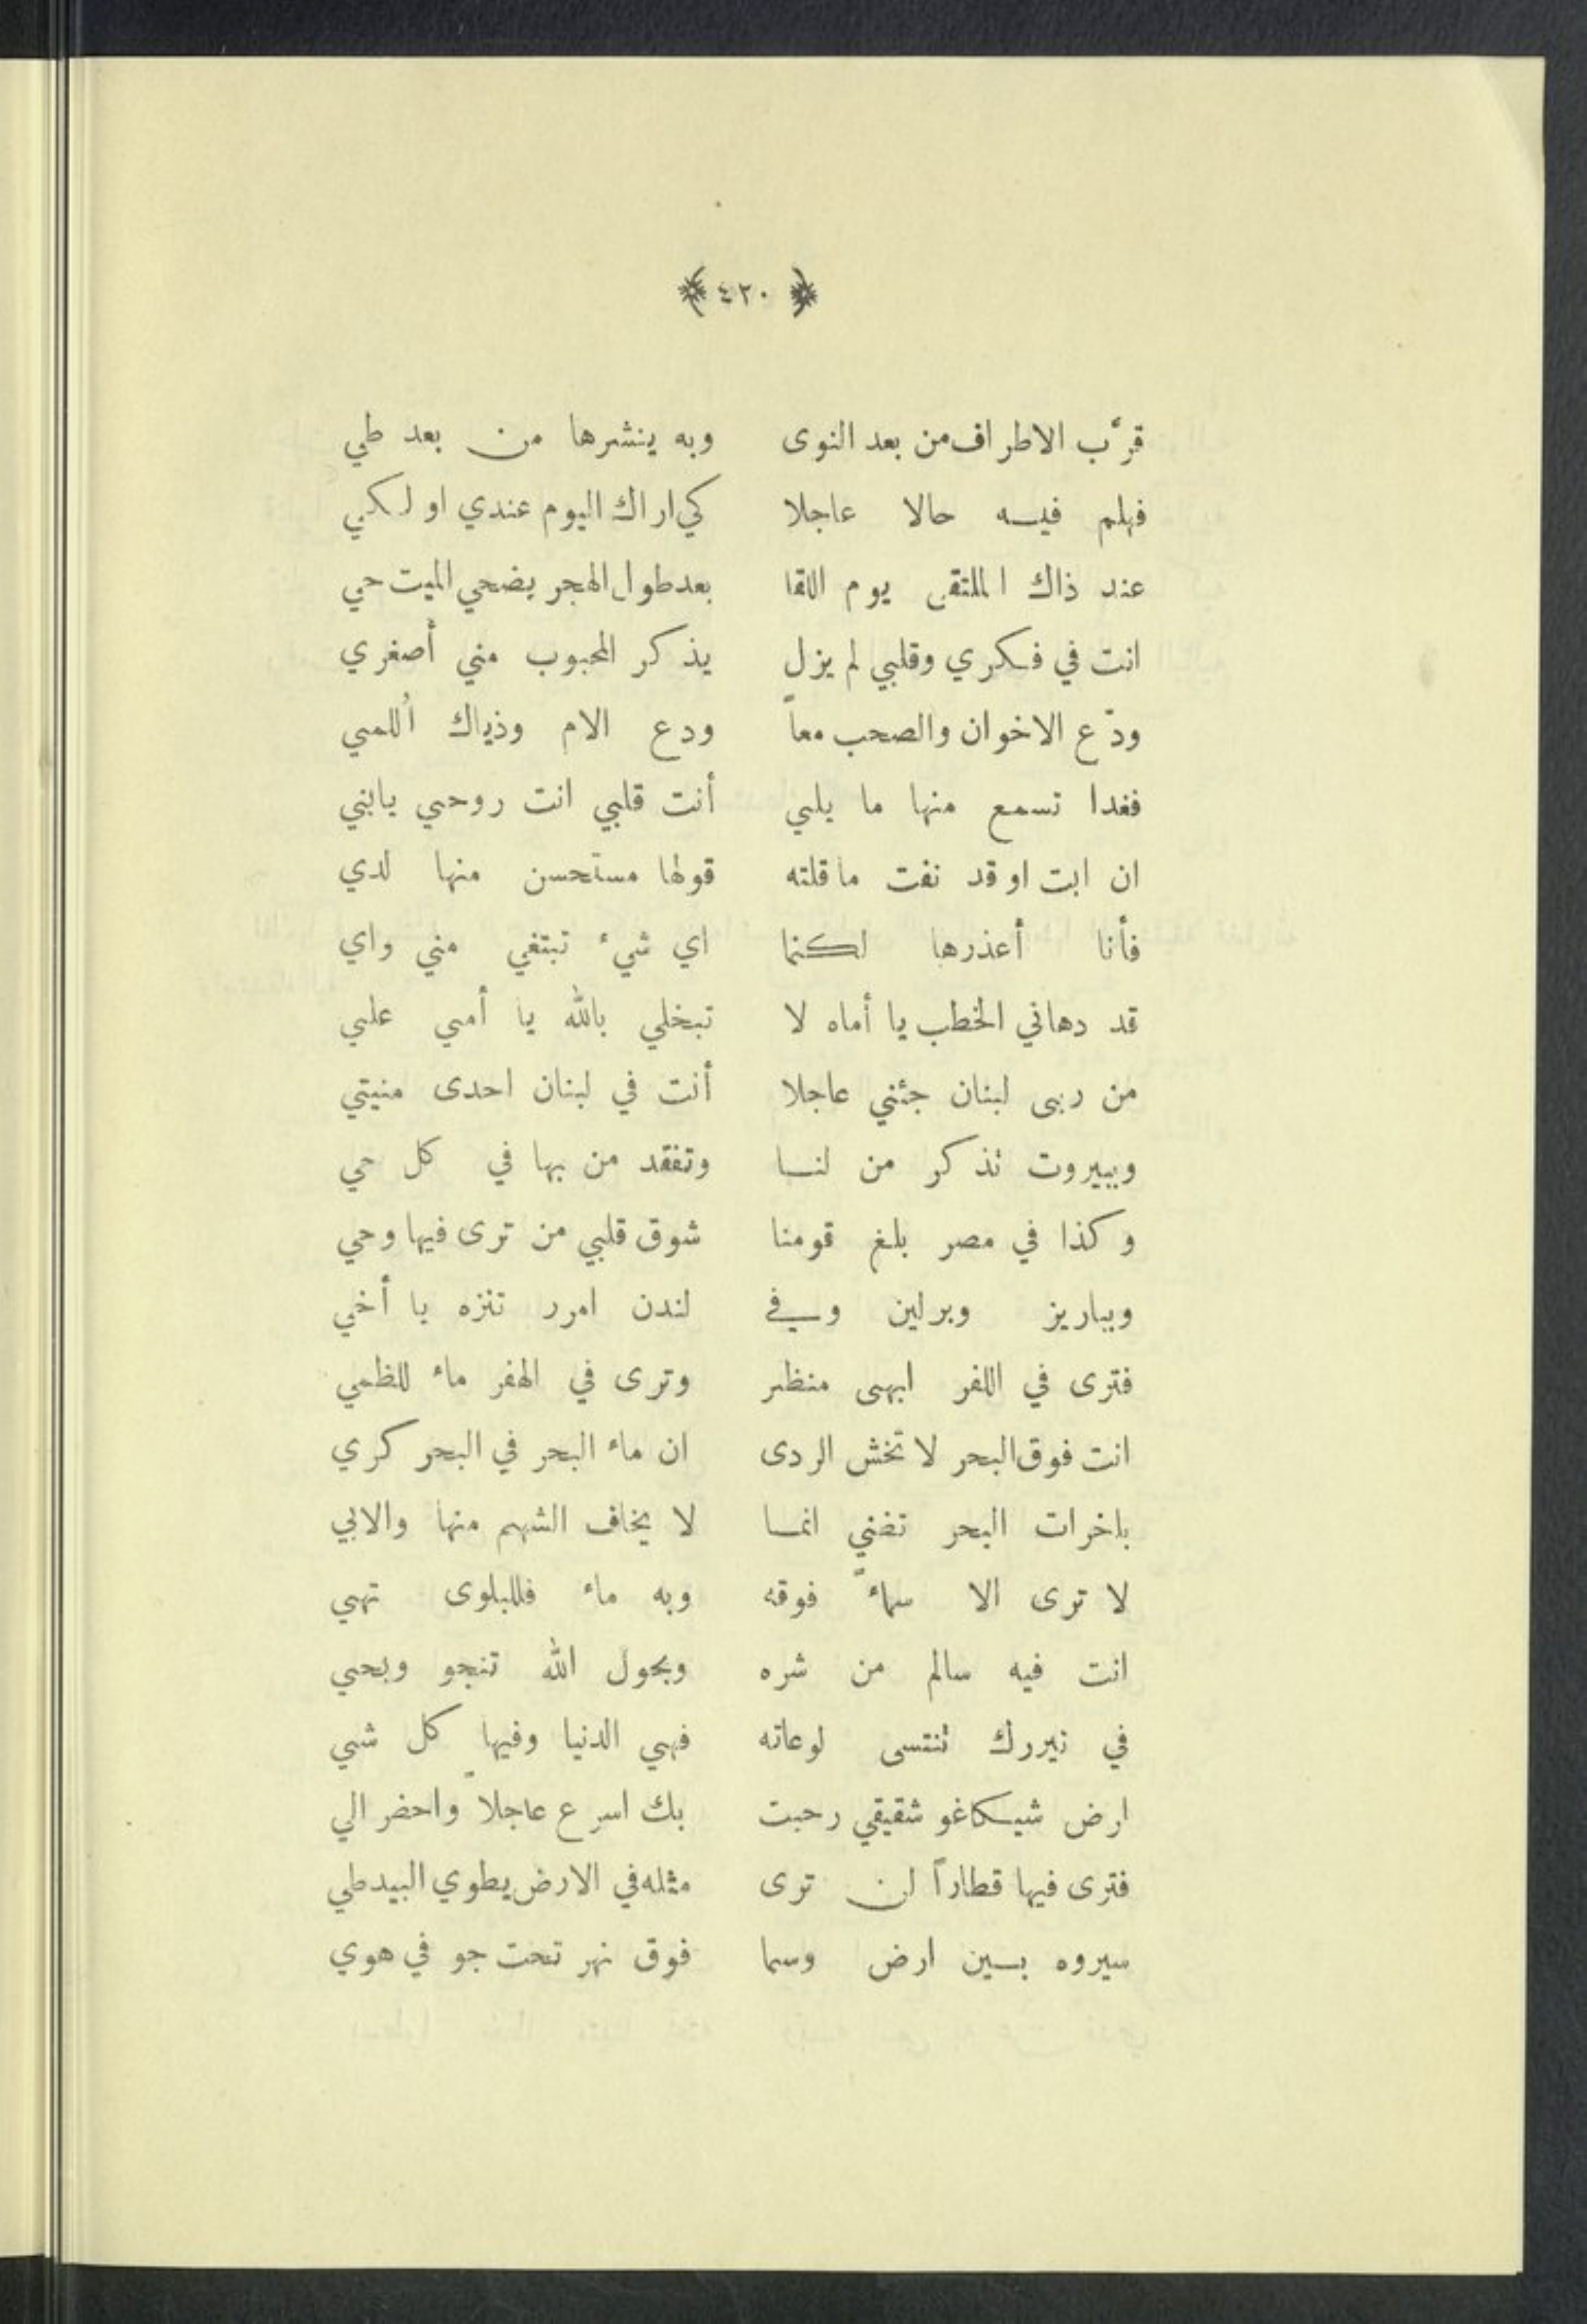 ﴿ ٤٢٠ ﴾
قرَّب الاطراف من بعد النوى وبه ينشرها من بعد طي
فهلم فيه حالا عاجلا كي اراك اليوم عندي او لكي
عند ذاك الملتقى يوم اللقا بعد طول الهجر يضحي الميت حي
انت في فكري وقلبي لم يزل يذكر المحبوب مني أصغري
ودّع الاخوان والصحب معاً ودع الام وذياك أللمي
فغدا تسمع منها ما يلي أنت قلبي انت روحي يابني
ان ابت او قد نفت ما قلته قولها مستحسن منها لدي
فأنا أعذرها لكنما اي شيء تبتغي مني واي
قد دهاني الخطب يا أماه لا تبخلي بالله يا أمي علي
من ربى لبنان جئني عاجلا أنت في لبنان احدى منيتي
وببيروت تذكر من لنا وتفقد من بها في كل حي
وكذا في مصر بلغ قومنا شوق قلبي من ترى فيها وحي
وبباريز وبرلين وفي لندن امرر تنزه يا أخي
فترى في اللفر ابهى منظر وترى في الهفر ماء للظمي
انت فوق البحر لا تخش الردى ان ماء البحر في البحر كري
باخرات البحر تفني انما لا يخاف الشهم منها والابي
لا ترى الا سماءً فوقه وبه ماء فللبلوى تهي
انت فيه سالم من شره وبحول الله تنجو وبحي
في نيررك تنتسى لوعاته فهي الدنيا وفيها كل شي
ارض شيكاغو شقيقي رحبت بك اسرع عاجلاً واحضر الي
فترى فيها قطاراً لن ترى مثله في الارض يطوي البيد طي
سيروه بين ارض وسما فوق نهر تحت جو في هوي